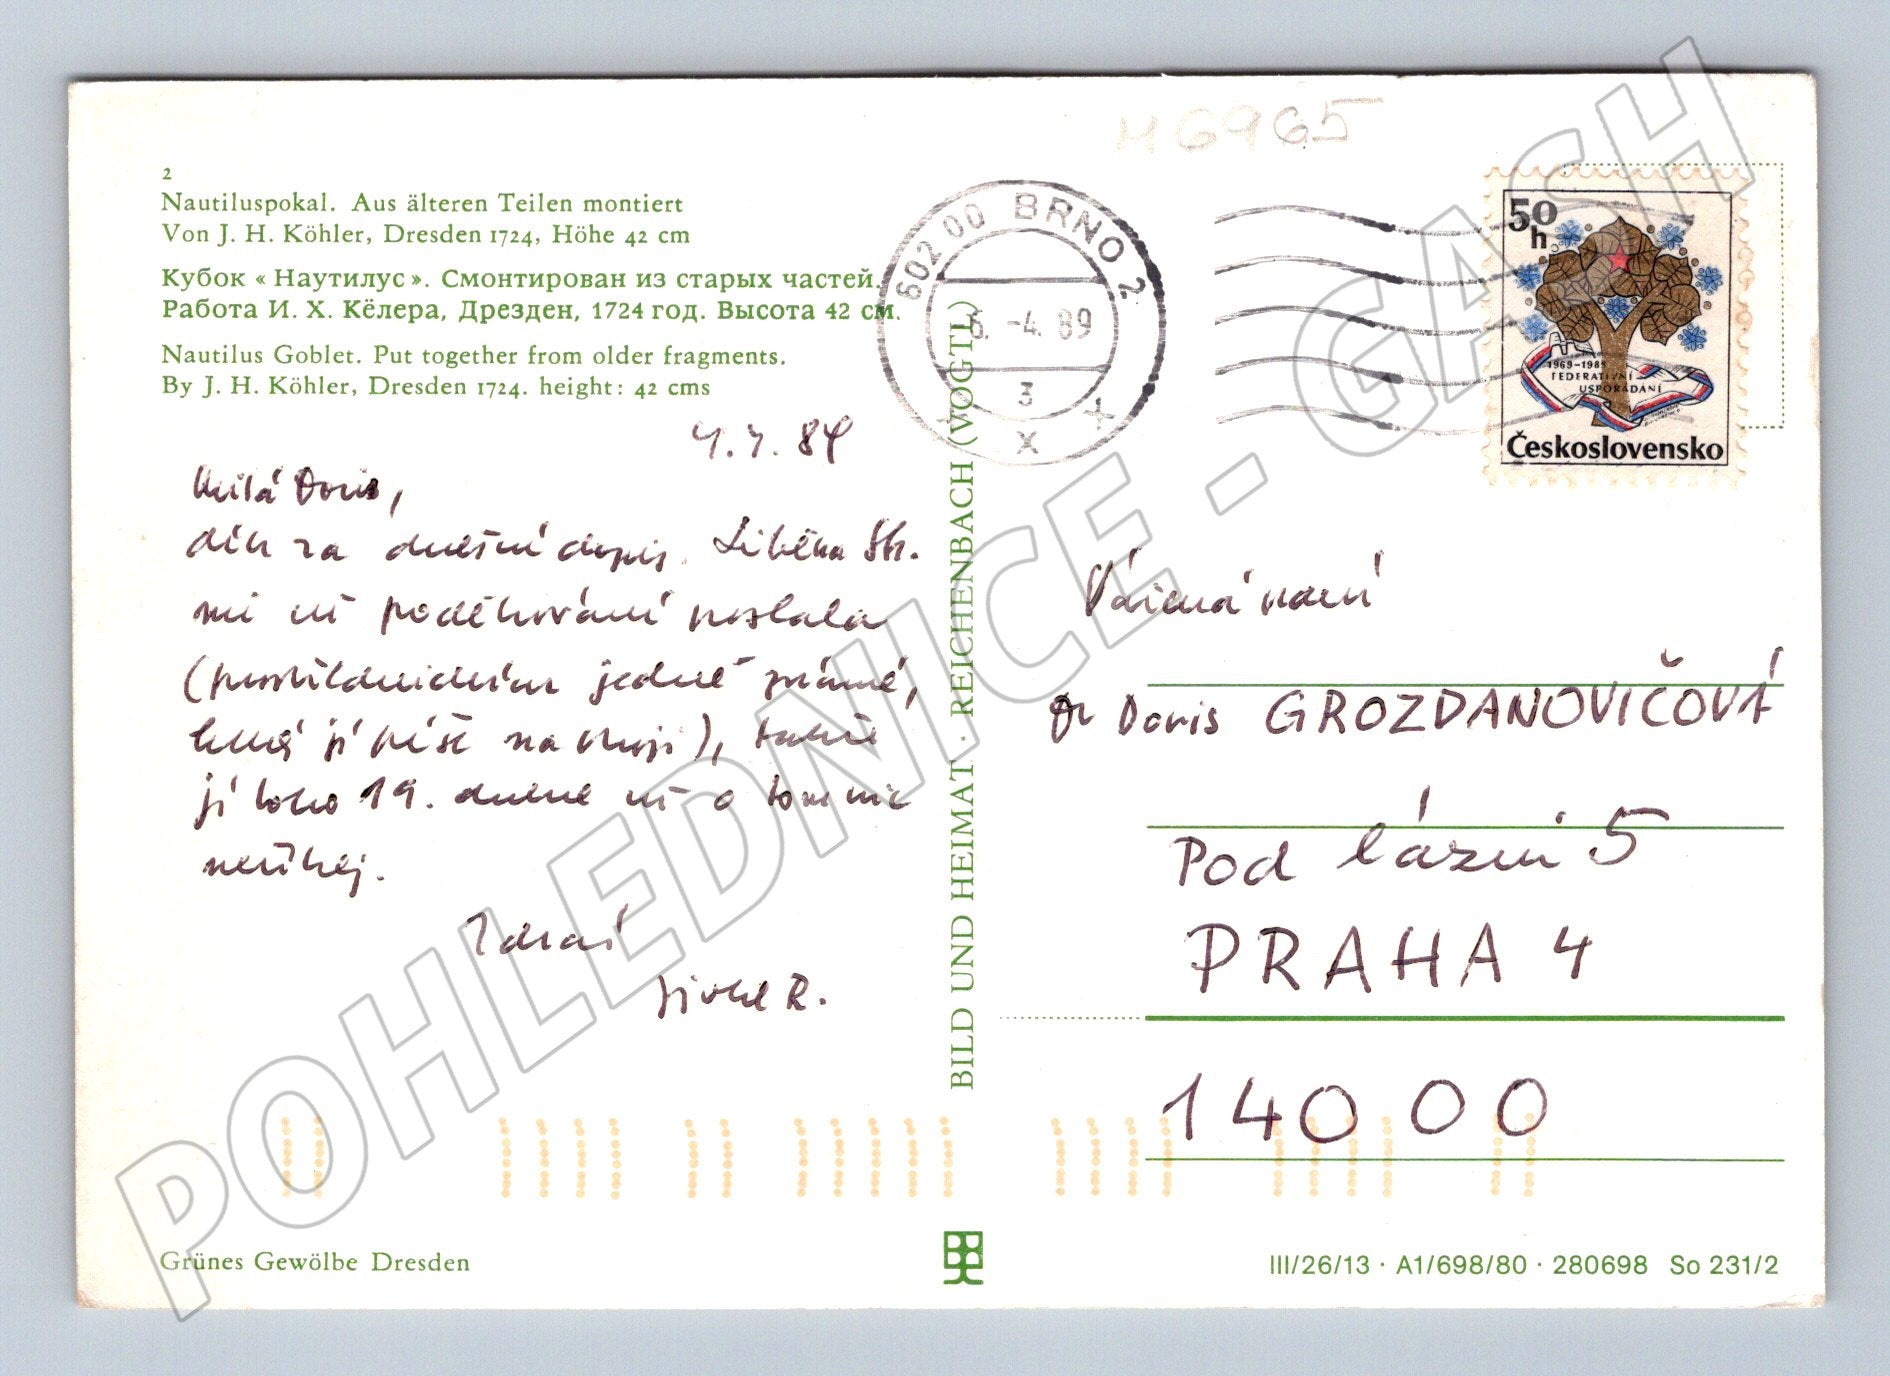 M 6965
2
Nautiluspokal. Aus älteren Teilen montiert
Von J. H. Köhler, Dresden 1724, Höhe 42 cm
Кубок « Наутилус ». Смонтирован из старых частей.
Работа И. Х. Кёлера, Дрезден, 1724 год. Высота 42 см.
Nautilus Goblet. Put together from older fragments.
By J. H. Köhler, Dresden 1724. height: 42 cms
Milá Doris,
dík za dnešní dopis. Liběna Šk.
mi už poděkování poslala
jedné známé,
která jí píše na stroji), takže
jí toho 19. dubna už o tom nic
neříkej.
Zdraví
R.
BILD UND HEIMAT · REICHENBACH (VOGTL)
602 00 BRNO 2
6. -4. 89
3
x
50
h
1969-1989
FEDERATIVNÍ
USPOŘÁDÁNÍ
Československo
Vážená paní
Dr Doris GROZDANOVIČOVÁ
Pod lázní 5
PRAHA 4
140 00
Grünes Gewölbe Dresden
III/26/13 · A1/698/80 · 280698 So 231/2
POHLEDNICE - GASH